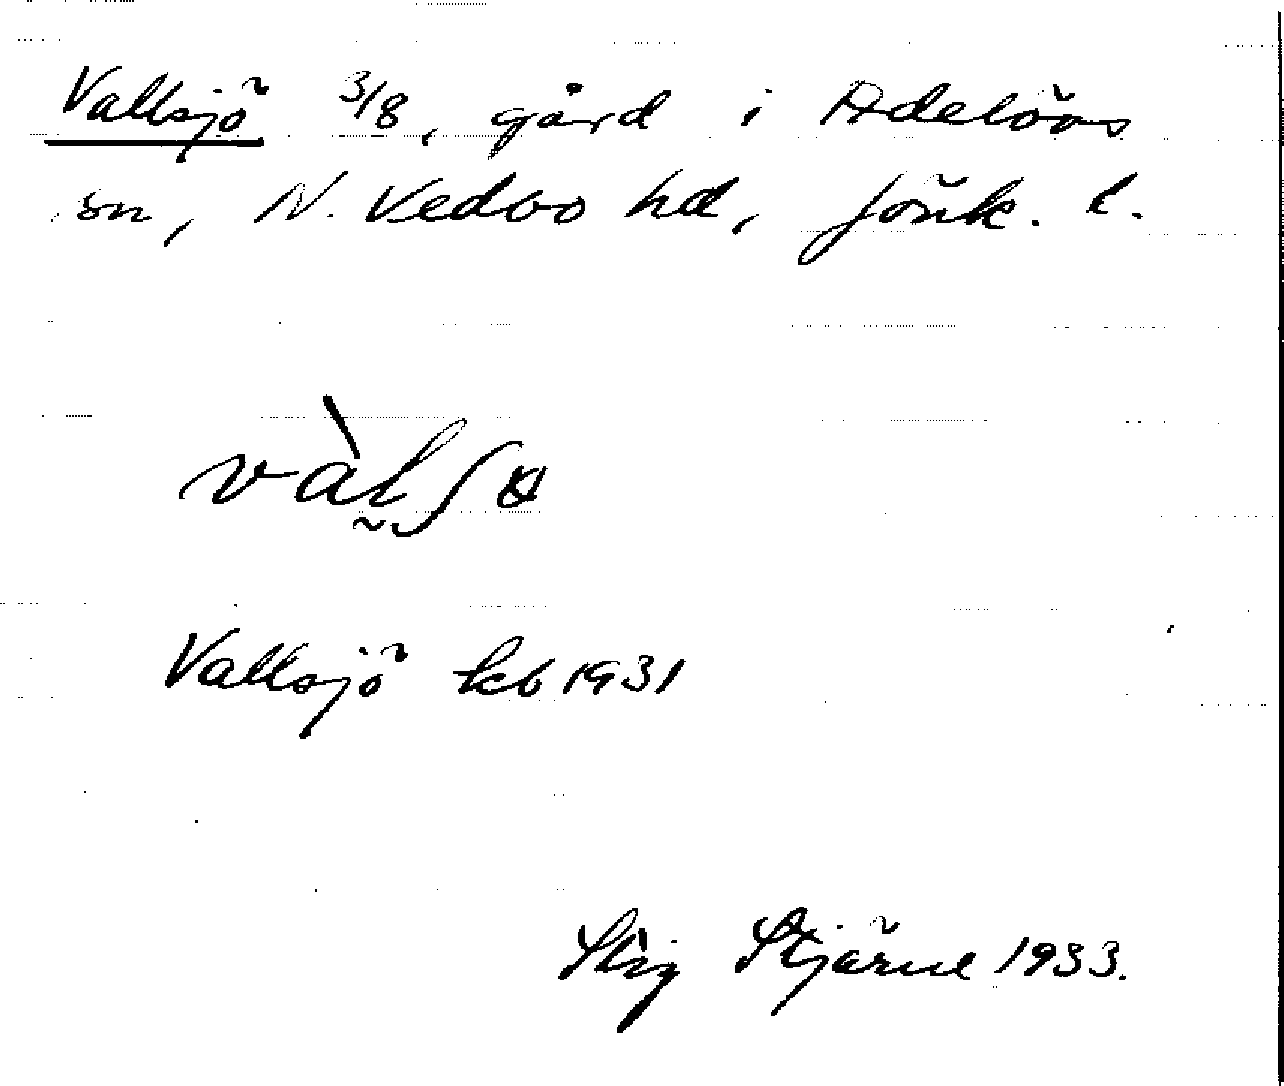 Vallsjö 3/8, gård i Adelövs
sn, N. Vedbo hd, Jönk. l.
vàl̰ʃɷ
Vallsjö kb 1931
Stig Stjärne 1933.